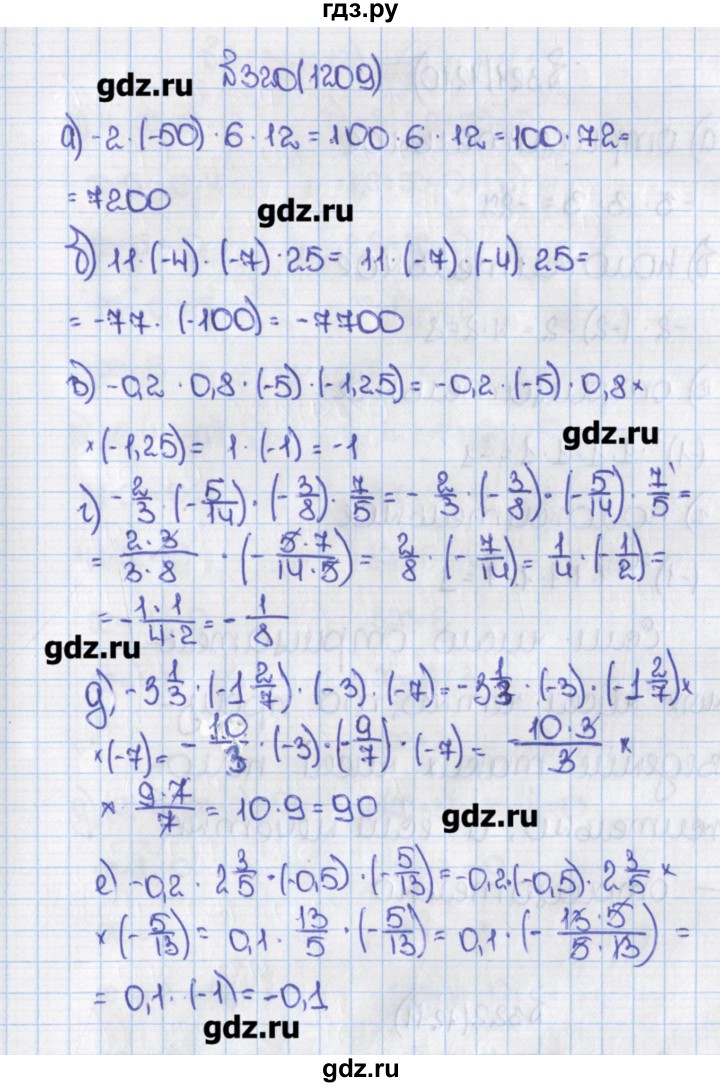 гдз.ру
№320(1209)
gdz.ru
а) -2·(-50)·6·12=100·6·12=100·72=
=7200
gdz.ru
б) 11·(-4)·(-7)·25= 11·(-7)·(-4)·25=
= -77·(-100)= -7700
в) -0,2·0,8·(-5)·(-1,25)= -0,2·(-5)·0,8×
gdz.ru
×(-1,25)= 1·(-1)= -1
г) -2/3·(-5/14)·(-3/8)·7/5= -2/3·(-3/8)·(-5/14)·7/5=
= 2·3/3·8·(-5·7/14·5)= 2/8·(-7/14)= 1/4·(-1/2)=
= -1·1/4·2= -1/8
gdz.ru
д) -3 1/3·(-1 2/7)·(-3)·(-7)= -3 1/3·(-3)·(-1 2/7)×
×(-7)= -10/3·(-3)·(-9/7)·(-7)= -10·3/3×
× 9·7/7= 10·9=90
gdz.ru
е) -0,2·2 3/5·(-0,5)·(-5/13)= -0,2·(-0,5)·2 3/5×
×(-5/13)= 0,1·13/5·(-5/13)= 0,1·(-13·5/5·13)=
= 0,1·(-1)= -0,1
gdz.ru
gdz.ru